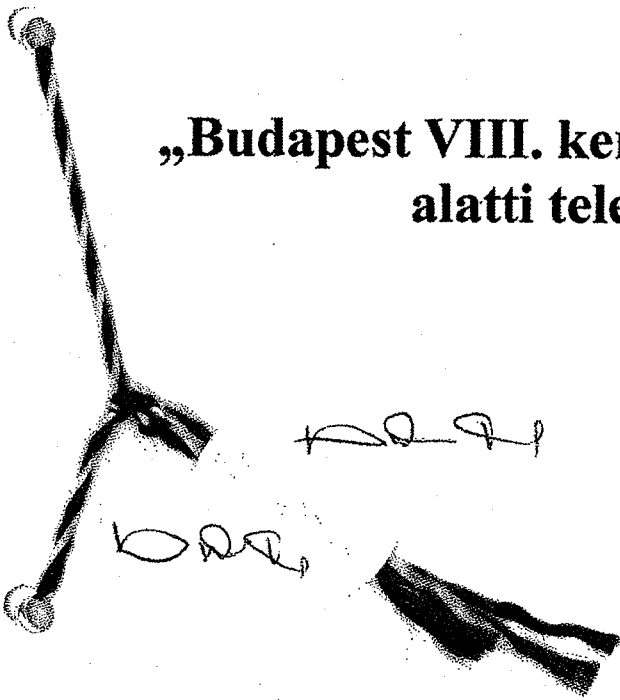 „Budapest VIII. ker
alatti tele